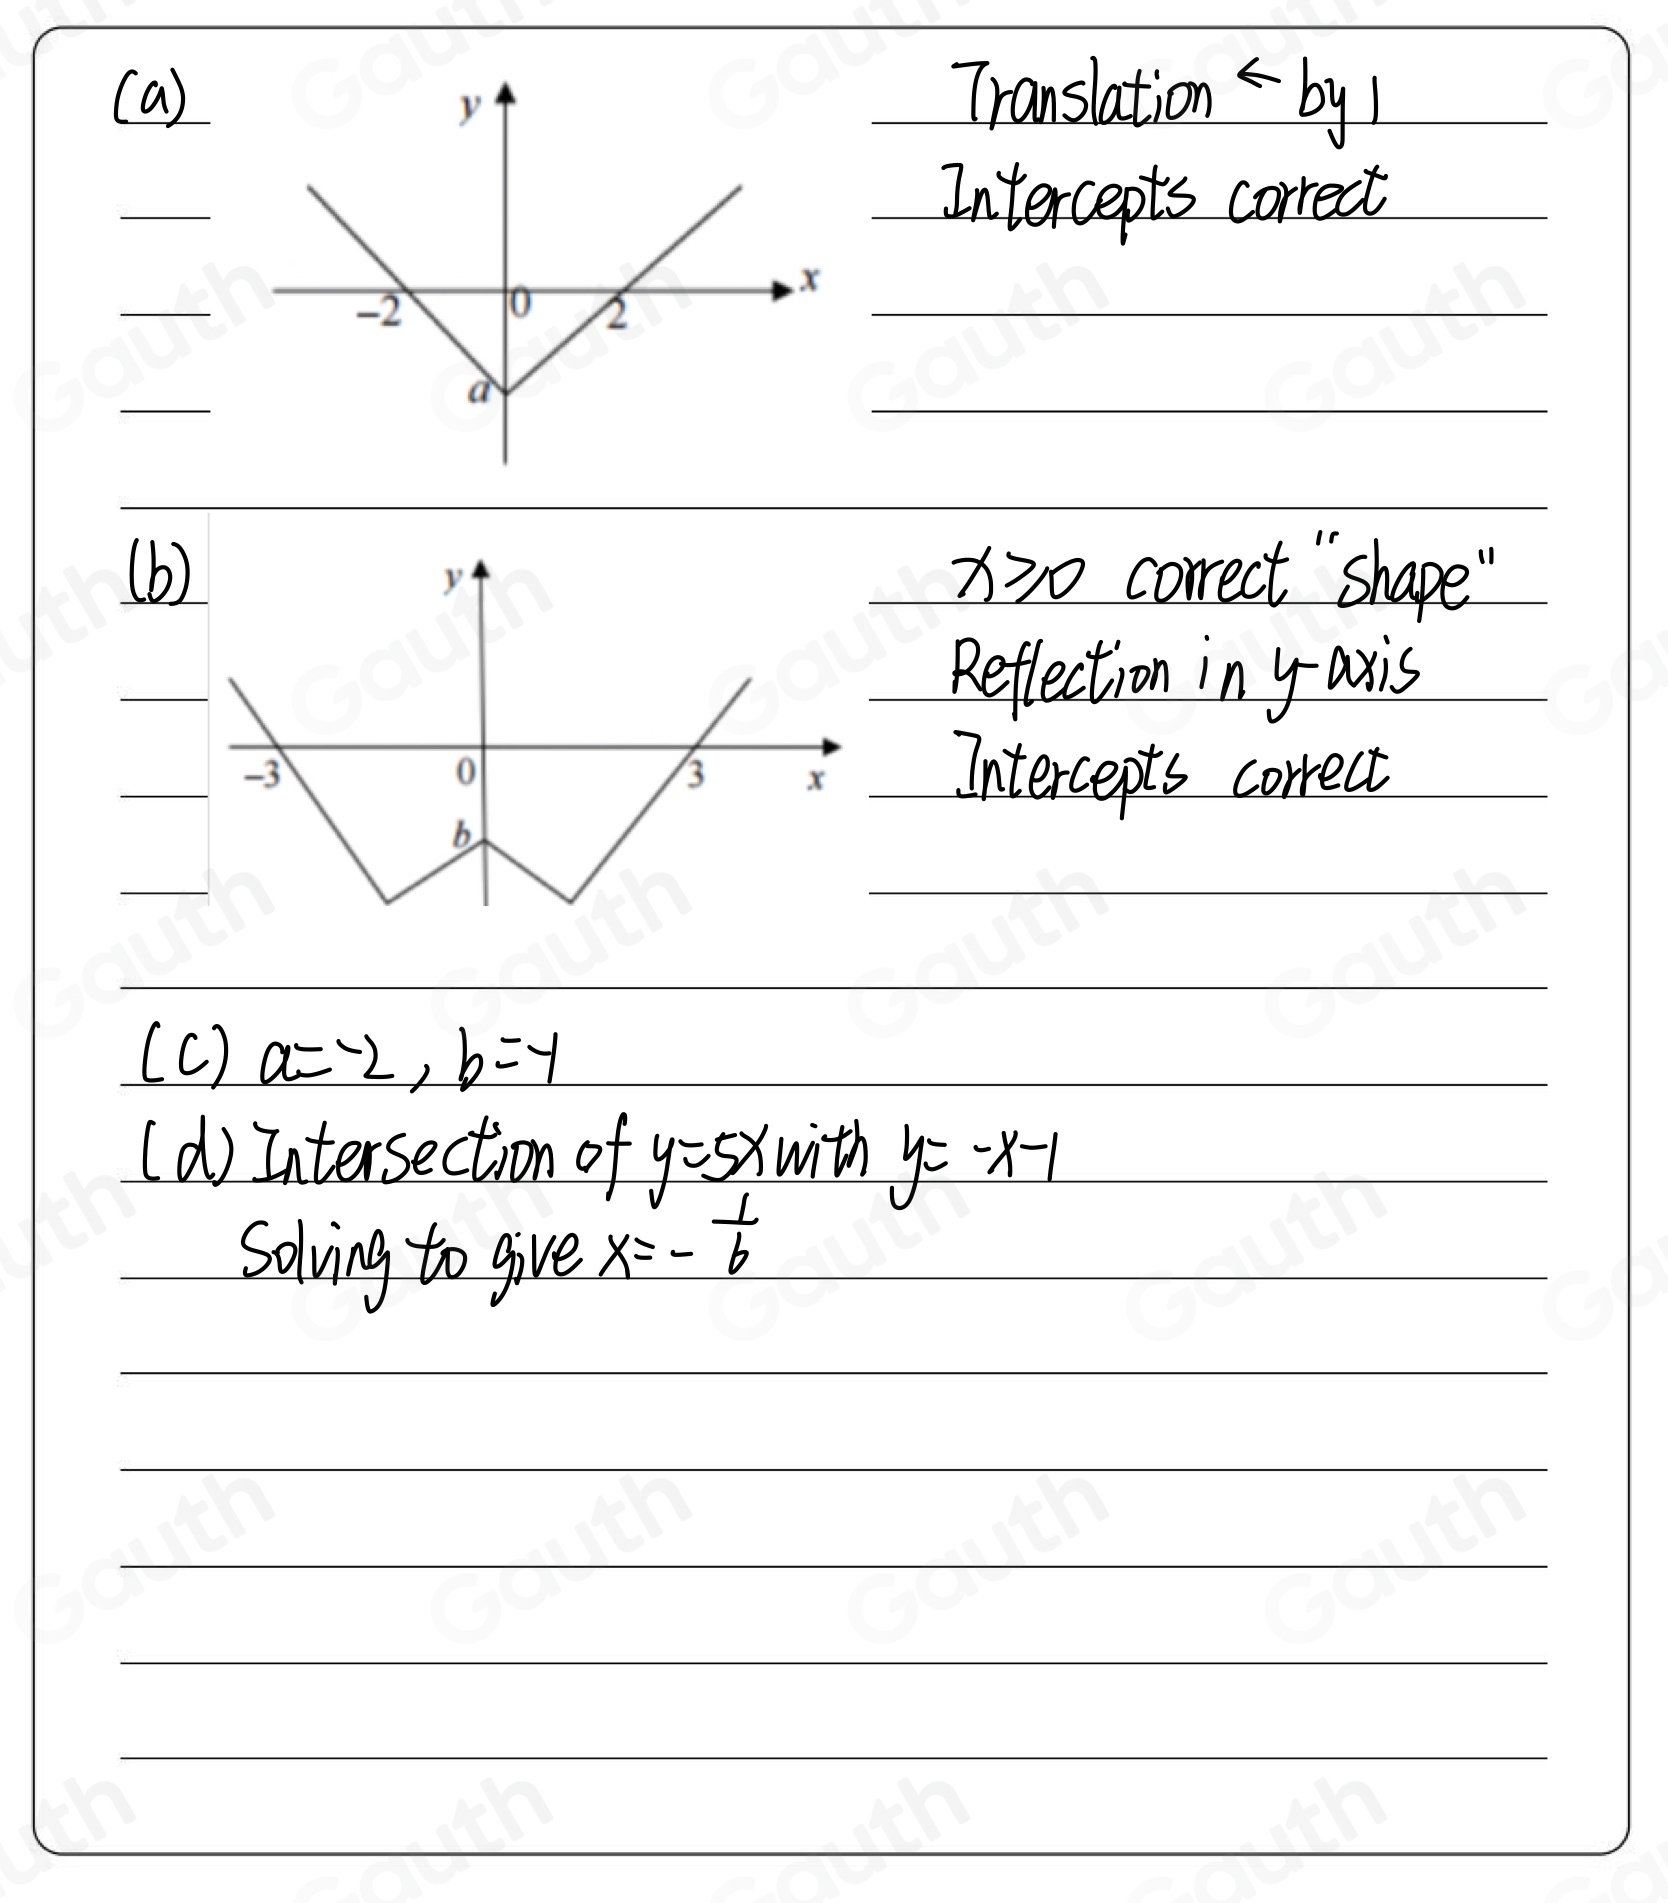 (a)
y
x
-2
0
2
a
Translation ← by 1
Intercepts correct
(b)
y
-3
0
3
x
b
x≥0 correct "shape"
Reflection in y-axis
Intercepts correct
(c) a=-2, b=-1
(d) Intersection of y=5x with y= -x-1
Solving to give x= - 1/6
Gauth